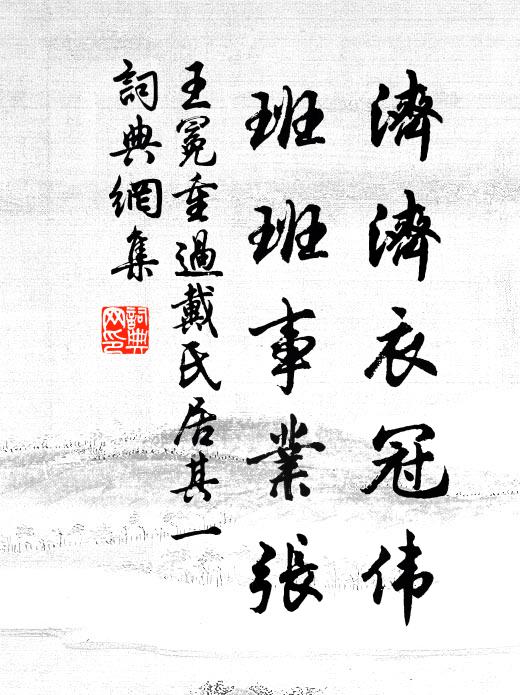 濟濟衣冠伟
班班事業張
王冕重過戴氏居其一
詞典網集
詞典网印